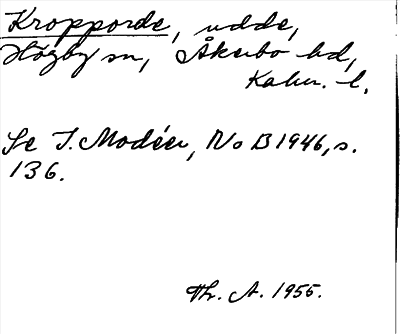 Kropporde, udde,
Högby sn, Åkerbo hd,
Kalm. l.
Se I. Modéer, NoB 1946, s.
136.
Th. A. 1955.